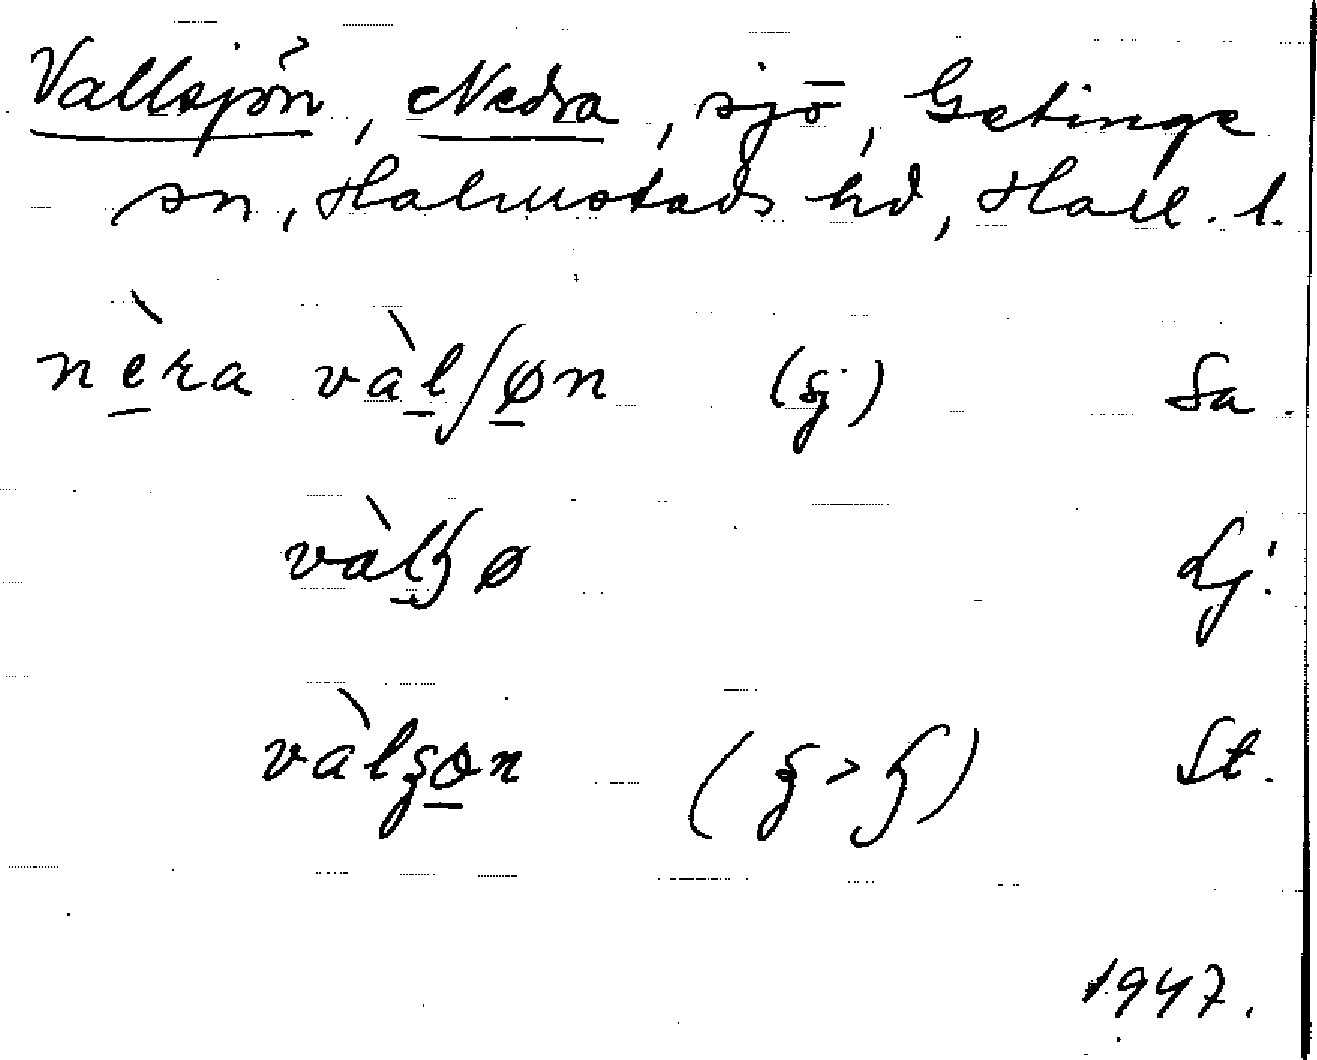 Vallsjön, Nedra, sjö, Getinge
sn, Halmstads hd, Hall. l.
nèra vàlʃøn (sj) Sa.
vàlɧø Lj.
vàlʂøn (ʂ > ɧ) St.
1947.